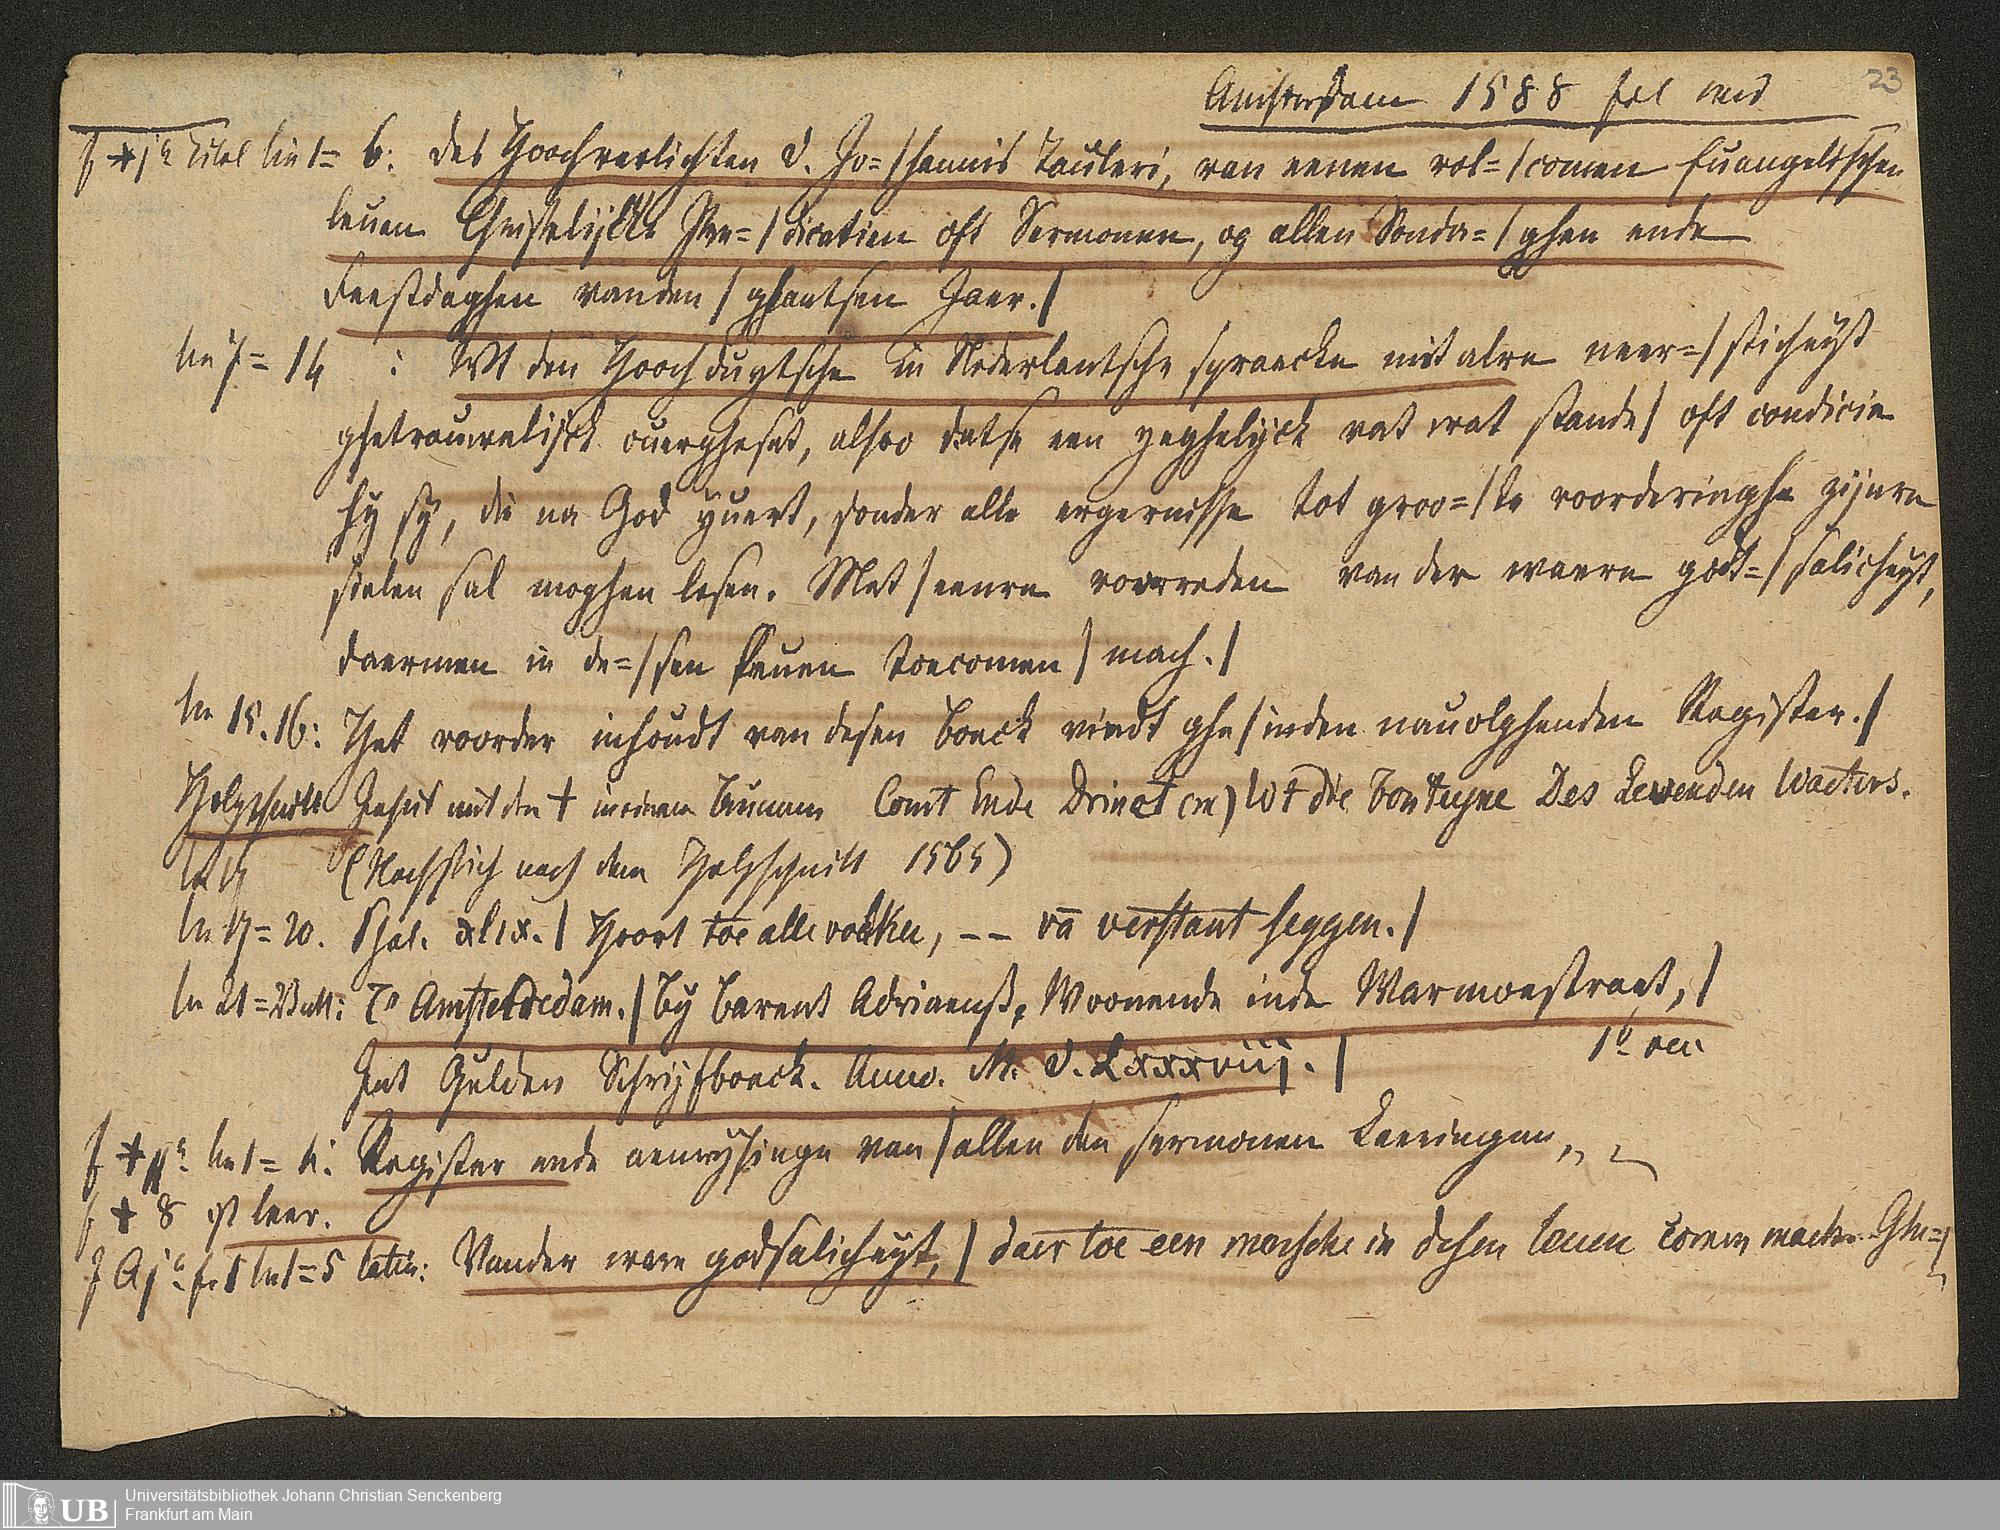 23
Amsterdam 1588 fol
Titel lin 1= 6: Des Hoochverlichten D. Jo=/hannis Tauleri, van eenen vol=/comen Euangelischen
leuen Christelijcke Pre=/dicatien oft Sermonen, op allen Sonda=/ghen ende
Feestdaghen vanden / ghantsen Jaer./
lin 7= 14 : Wt den Hoochduytsche in Nederlantsche spraecke met alre neer=/sticheyt
ghetrouwelijck ouergheset, alsoo datse een yeghelijck vat wat stande / oft condicie
hy sy, die na God yuert, sonder alle ergernisse tot groo=/te voorderinghe zijnre
sielen sal moghen lesen. Met / eenre voorreden van der waere godt=/salicheyt,
daermen in de=/sen leuen toecomen / mach./
lin 15. 16: Het voorder inhoudt van desen boeck vindt ghe / inden nauolghenden Register./
Holzschnitt Jesus mit dem † in einem Brunnen Comt Ende Drinct Wt die Fonteyne Des Levenden Waeters.
(Nachstich nach dem Holzschnitt 1565)
lin 17= 20. Psal. xlix. / Hoort toe alle volcken, -- vā verstant seggen./
lin 21= : T' Amstelredam. / By Barent Adriaensz, Woonende inde Warmoestraet, /
Int Gulden Schrijfboeck. Anno. M. D. Lxxxviij. /
lin 1= 4: Register ende aenwysinge van / allen den sermonen Leeringen,
f † 8 ist leer.
f A j lin 1= 5 : Vander ware godsalicheyt, / daer toe een mensche in desen leuen comen mach. Ghe=/
UB
Universitätsbibliothek Johann Christian Senckenberg
Frankfurt am Main